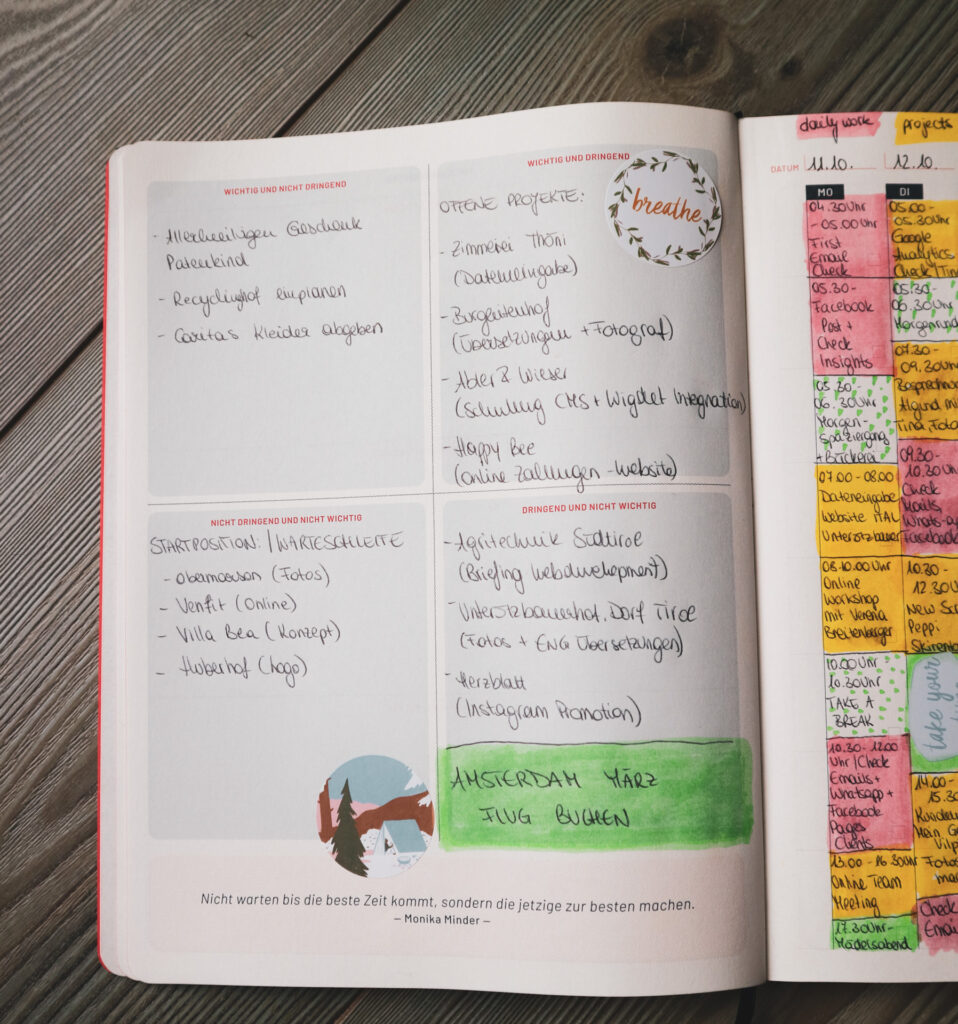 WICHTIG UND NICHT DRINGEND
- Allerheiligen Geschenk
Patenkind
- Recyclinghof einplanen
- Caritas Kleider abgeben
WICHTIG UND DRINGEND
OFFENE PROJEKTE:
breathe
- Zimmerei Thöni
(Dateneingabe)
- Burgerhof
(Übersetzungen + Fotograf)
- Abler & Wieser
(Schulung CMS + Widget Integration)
- Happy Bee
(Online Zahlungen - Website)
NICHT DRINGEND UND NICHT WICHTIG
STARTPOSITION: / WARTESCHLEIFE
- Obermoosen (Fotos)
- Venfit (Online)
- Villa Bea (Konzept)
- Huberhof (Logo)
DRINGEND UND NICHT WICHTIG
- Agritechnik Südtirol
(Briefing Webdevelopment)
- Unterötzbauerhof, Dorf Tirol
(Fotos + ENG Übersetzungen)
- Herzblatt
(Instagram Promotion)
AMSTERDAM MÄRZ
FLUG BUCHEN
Nicht warten bis die beste Zeit kommt, sondern die jetzige zur besten machen.
– Monika Minder –
daily work
projects
DATUM 11.10. 12.10.
MO
04.30 Uhr
- 05.00 Uhr
First
Email
Check
05.30-
Facebook
Post +
Check
Insights
05.30 -
06.30 Uhr
Morgen-
Spaziergang
+ Bäckerei
07.00 - 08.00
Dateneingabe
Website ITAL
Unterötzbauer
08-10.00 Uhr
Online
Workshop
mit Verena
Breitenberger
10.00 Uhr
10.30 Uhr
TAKE A
BREAK
10.30 - 12.00
Uhr / Check
Emails +
Whatsapp +
Facebook
Pages
Clients
13.00 - 16.30 Uhr
Online Team
Meeting
17.30 Uhr -
Mädelsabend
DI
05.00 -
05.30 Uhr
Google
Analytics
Check
05.30 -
06.30 Uhr
07.30 -
09.30 Uhr
Algund
Tina, Foto
09.30 -
10.30 Uhr
Check
Mails,
Facebook
10.30 -
12.30
New
take your
14.00 -
15.30
Mein
Foto
Check